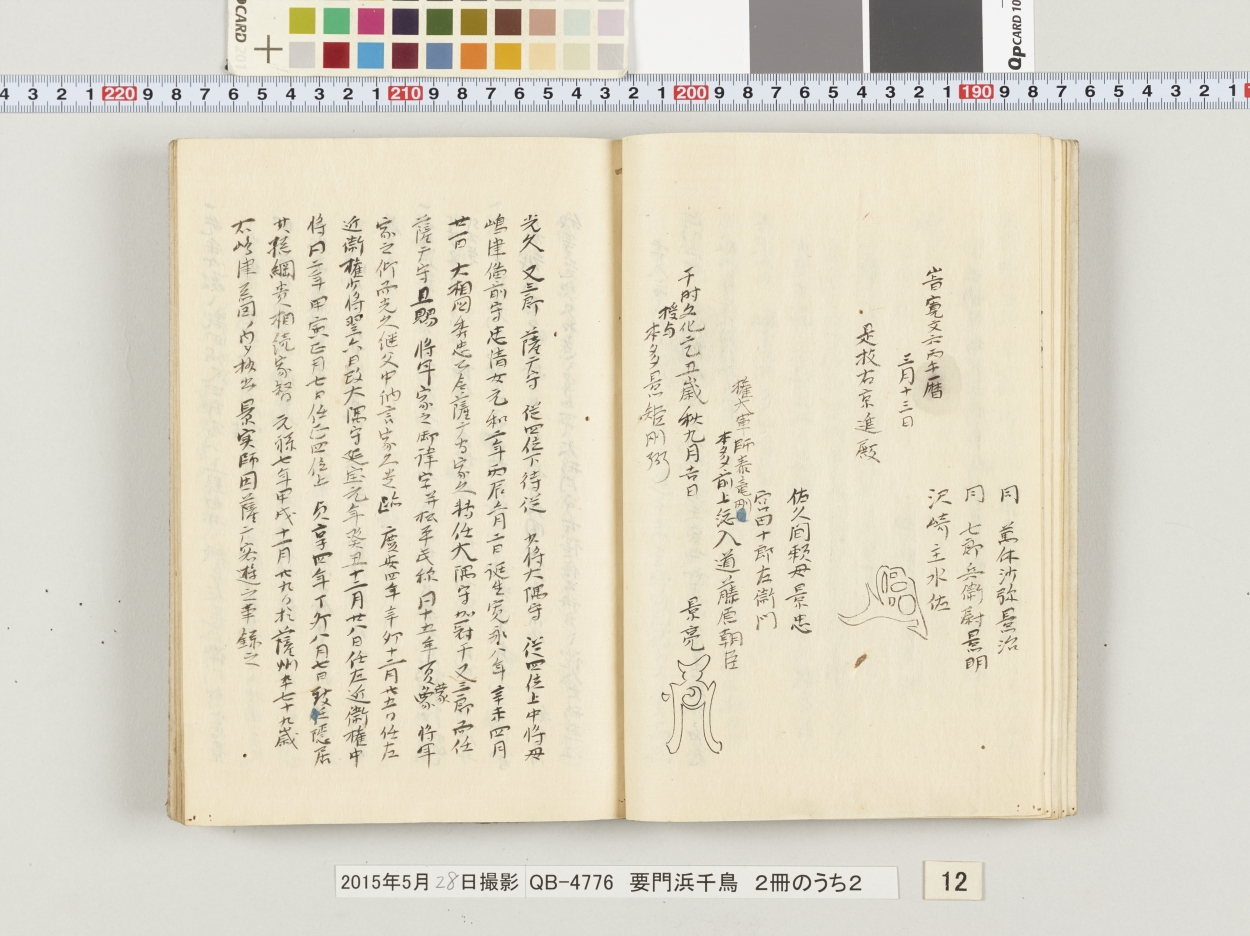 CARD 201
QpCARD 10
4 3 2 1 220 9 8 7 6 5 4 3 2 1 210 9 8 7 6 5 4 3 2 1 200 9 8 7 6 5 4 3 2 1 190 9 8 7 6 5 4 3 2 1
同 葉休沙弥景治
同 七郎兵衛尉景明
沢崎主水佐
旹寛文六丙午暦
三月十三日
是枝右京進殿
佐久間頼母景忠
四十郎左衛門
権大軍師泰竜剛
本多前上総入道藤原朝臣
景亮
于時文化乙丑歳秋九月吉日
授与
本多景矩
光久 又三郎 薩ア守 従四位下侍従 少将大隅守 従四位上中将母
嶋津備前守忠清女元和二年丙辰六月二日誕生寛永八年辛未四月
廿一日 大相国秀忠公令薩ア守家久転任大隅守加冠于又三郎而任
薩ア守且賜 将軍家之御諱字并松平氏称同十五年夏蒙 将軍
家之仰而光久継父中納言家久之跡 慶安四年辛卯十二月廿五日任左
近衛権少将翌六日改大隅守延宝元年癸丑十二月廿八日任左近衛権中
将同二年甲寅正月七日任正四位上 貞享四年丁卯八月七日致仕隠居
廿孫綱貴相続家智 元禄七年甲戌十一月廿九日於薩州卒七十九歳
右嶋津系図ノ内ヨリ抜出 景実師因薩ア客遊之事録之
2015年5月28日撮影 QB-4776 要門浜千鳥 2冊のうち2
12